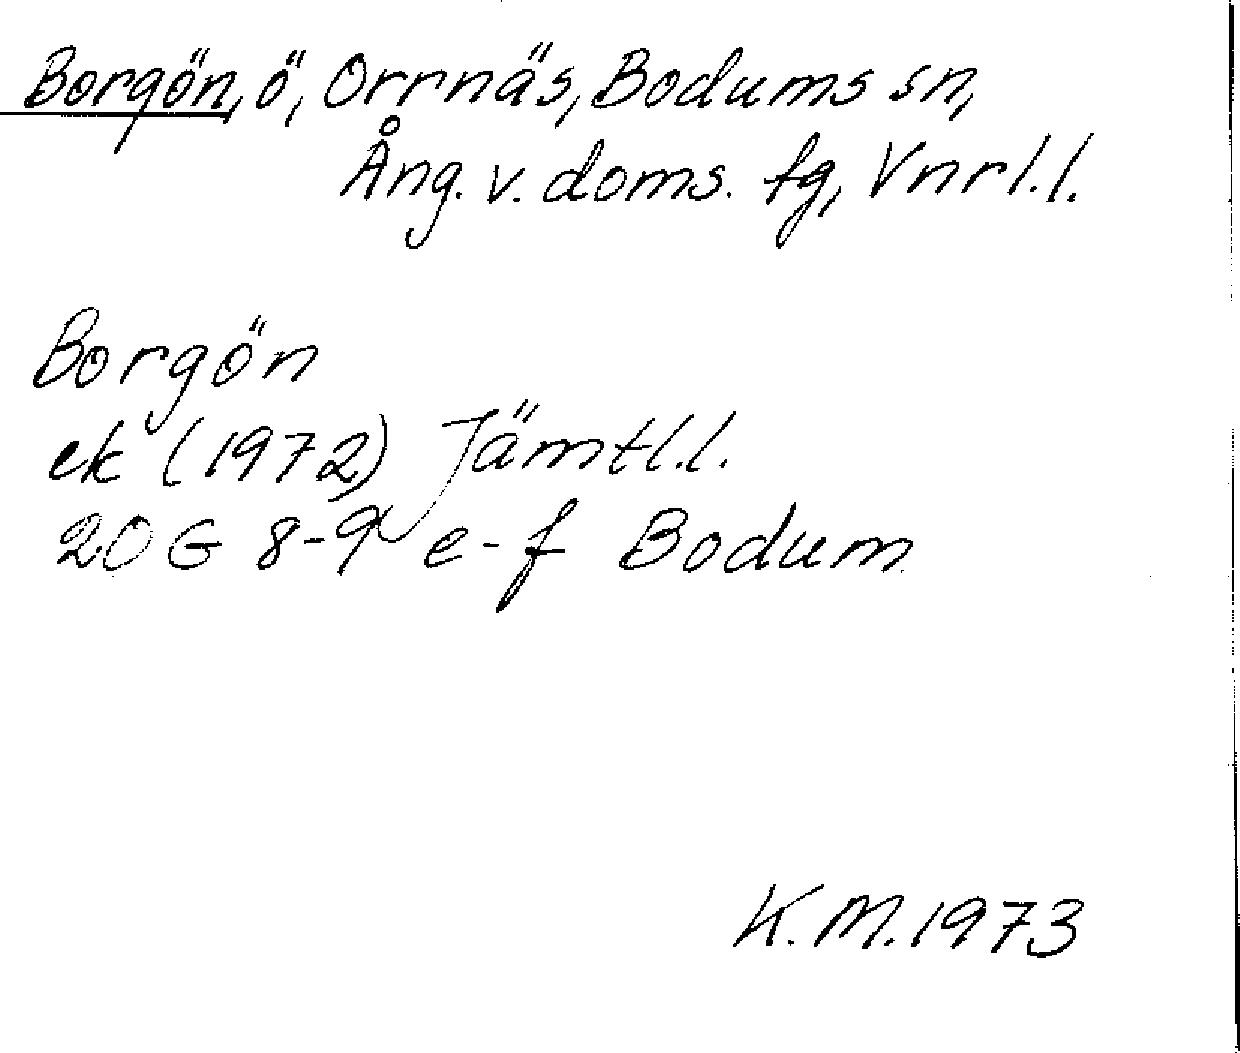 Borgön, ö, Orrnäs, Bodums sn,
Ång. v. doms. tg, Vnrl.l.
Borgön
ek (1972) Jämtl.l.
20G 8-9 e-f Bodum
K.M.1973